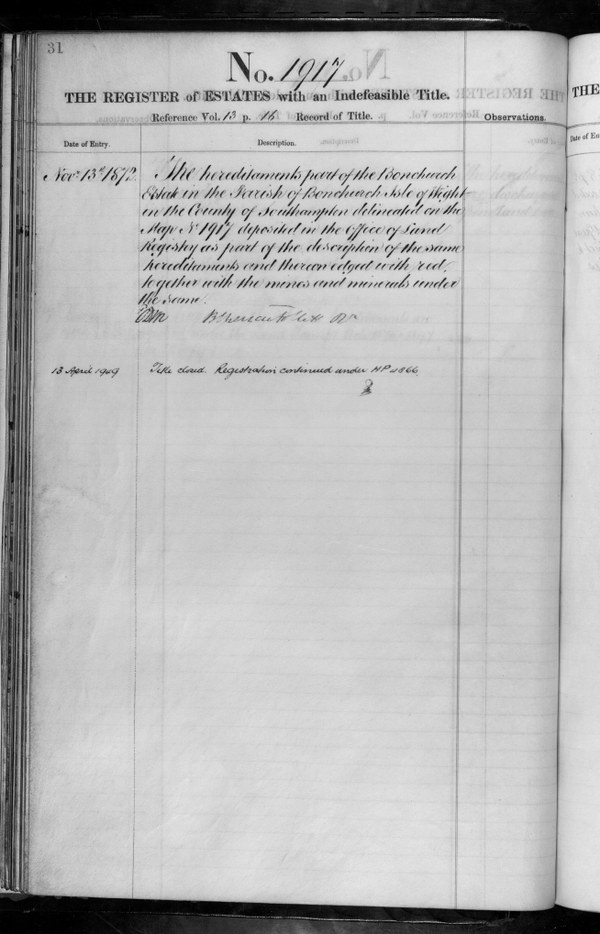 31
No. 1917
THE REGISTER of ESTATES with an Indefeasible Title.
Reference Vol. 13 p. 16 Record of Title.
Observations.
Date of Entry.
Description.
Novr. 13th 1872.
The hereditaments part of the Bonchurch
Estate in the Parish of Bonchurch Isle of Wight
in the County of Southampton delineated on the
Map No 1917 deposited in the Office of Land
Registry as part of the description of the same
hereditaments and thereon edged with red,
together with the mines and minerals under
the same.
13 April 1949
Title closed. Registration continued under HP 21866
THE
Date of En